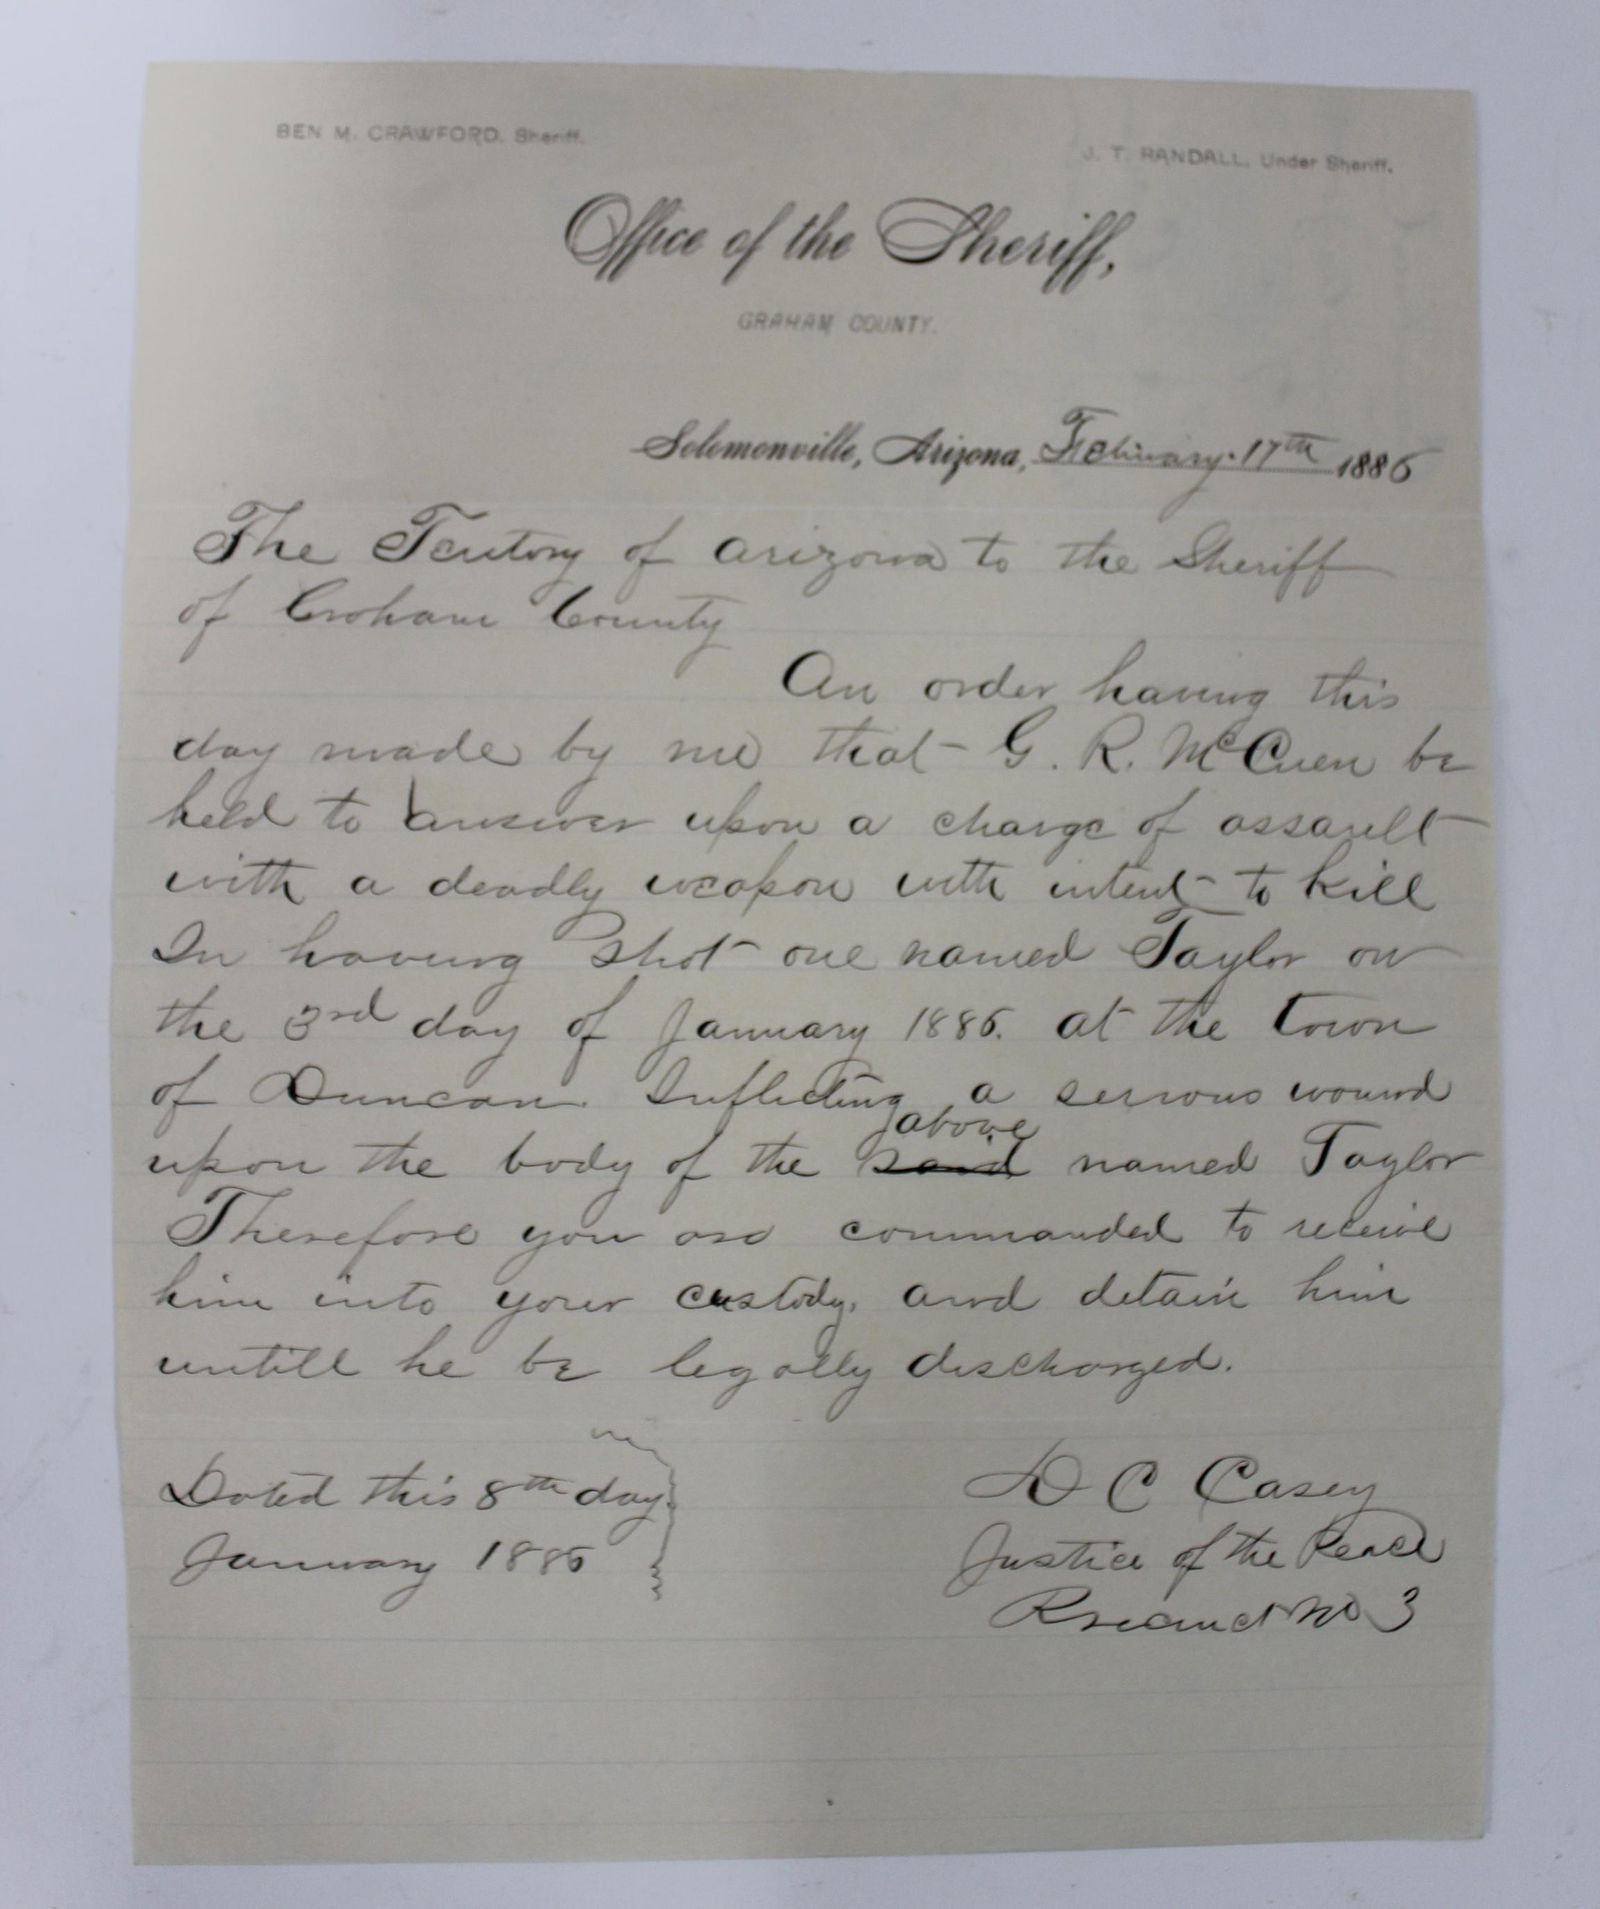 BEN M. CRAWFORD, Sheriff.
J. T. RANDALL, Under Sheriff.
Office of the Sheriff,
GRAHAM COUNTY.
Solomonville, Arizona, February 17th 1886
The Teritory of Arizona to the Sheriff
of Graham County
An order having this
day made by me that G. R. McCuen be
held to answer upon a charge of assault
with a deadly weapon with intent to kill
In having shot one named Taylor on
the 3rd day of January 1886. at the town
of Duncan. Inflicting a serious wound
above
upon the body of the said named Taylor
Therefore you are commanded to receive
him into your custody, and detain him
untill he be legally discharged.
Dated this 8th day
January 1886
D C Casey
Justice of the Peace
Precinct No 3